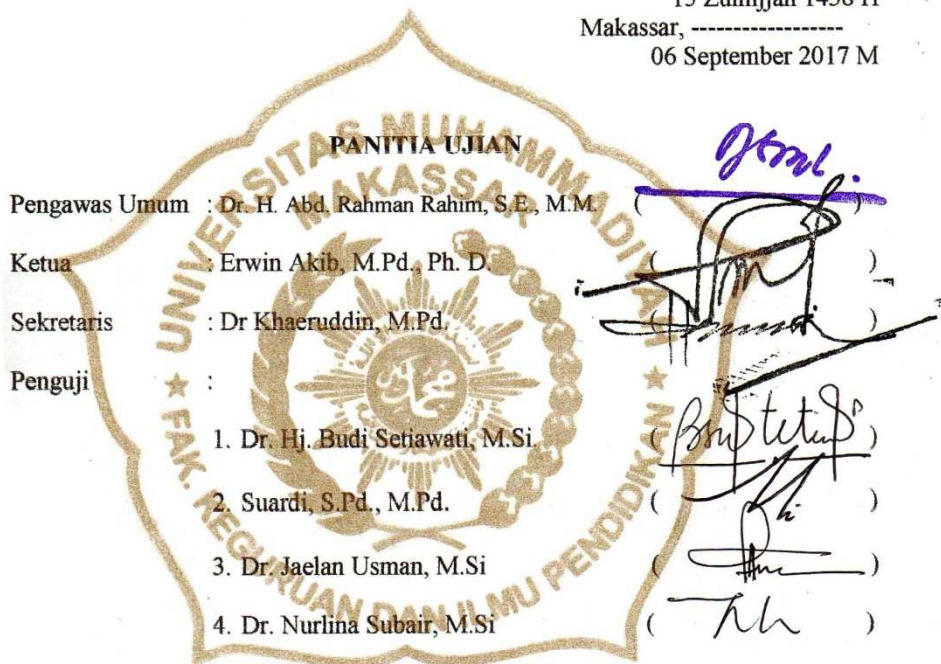 15 Zulhijjah 1438 H
Makassar, -------------------
06 September 2017 M
PANITIA UJIAN
Pengawas Umum : Dr. H. Abd. Rahman Rahim, S.E., M.M. ( )
Ketua : Erwin Akib, M.Pd., Ph. D. ( )
Sekretaris : Dr Khaeruddin, M.Pd. ( )
Penguji :
1. Dr. Hj. Budi Setiawati, M.Si. ( )
2. Suardi, S.Pd., M.Pd. ( )
3. Dr. Jaelan Usman, M.Si ( )
4. Dr. Nurlina Subair, M.Si ( )
UNIVERSITAS MUHAMMADIYAH
MAKASSAR
★ FAK. KEGURUAN DAN ILMU PENDIDIKAN ★